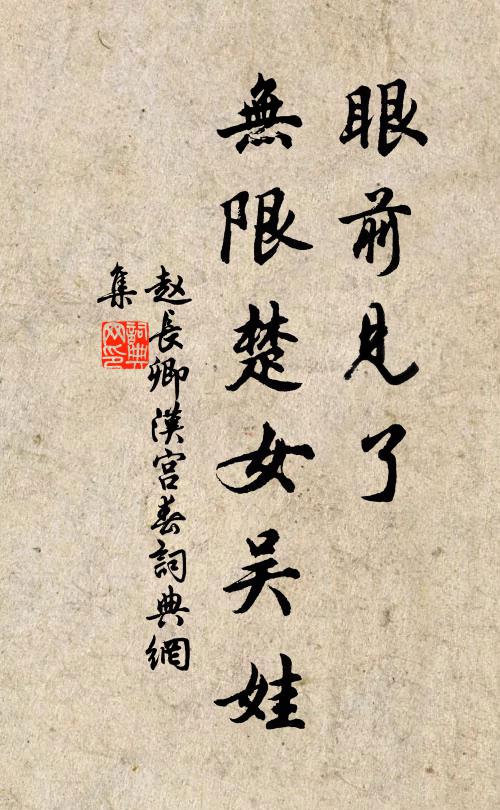 眼前見了
無限楚女吴娃
赵長卿漢宫春詞典網
集
詞典网印